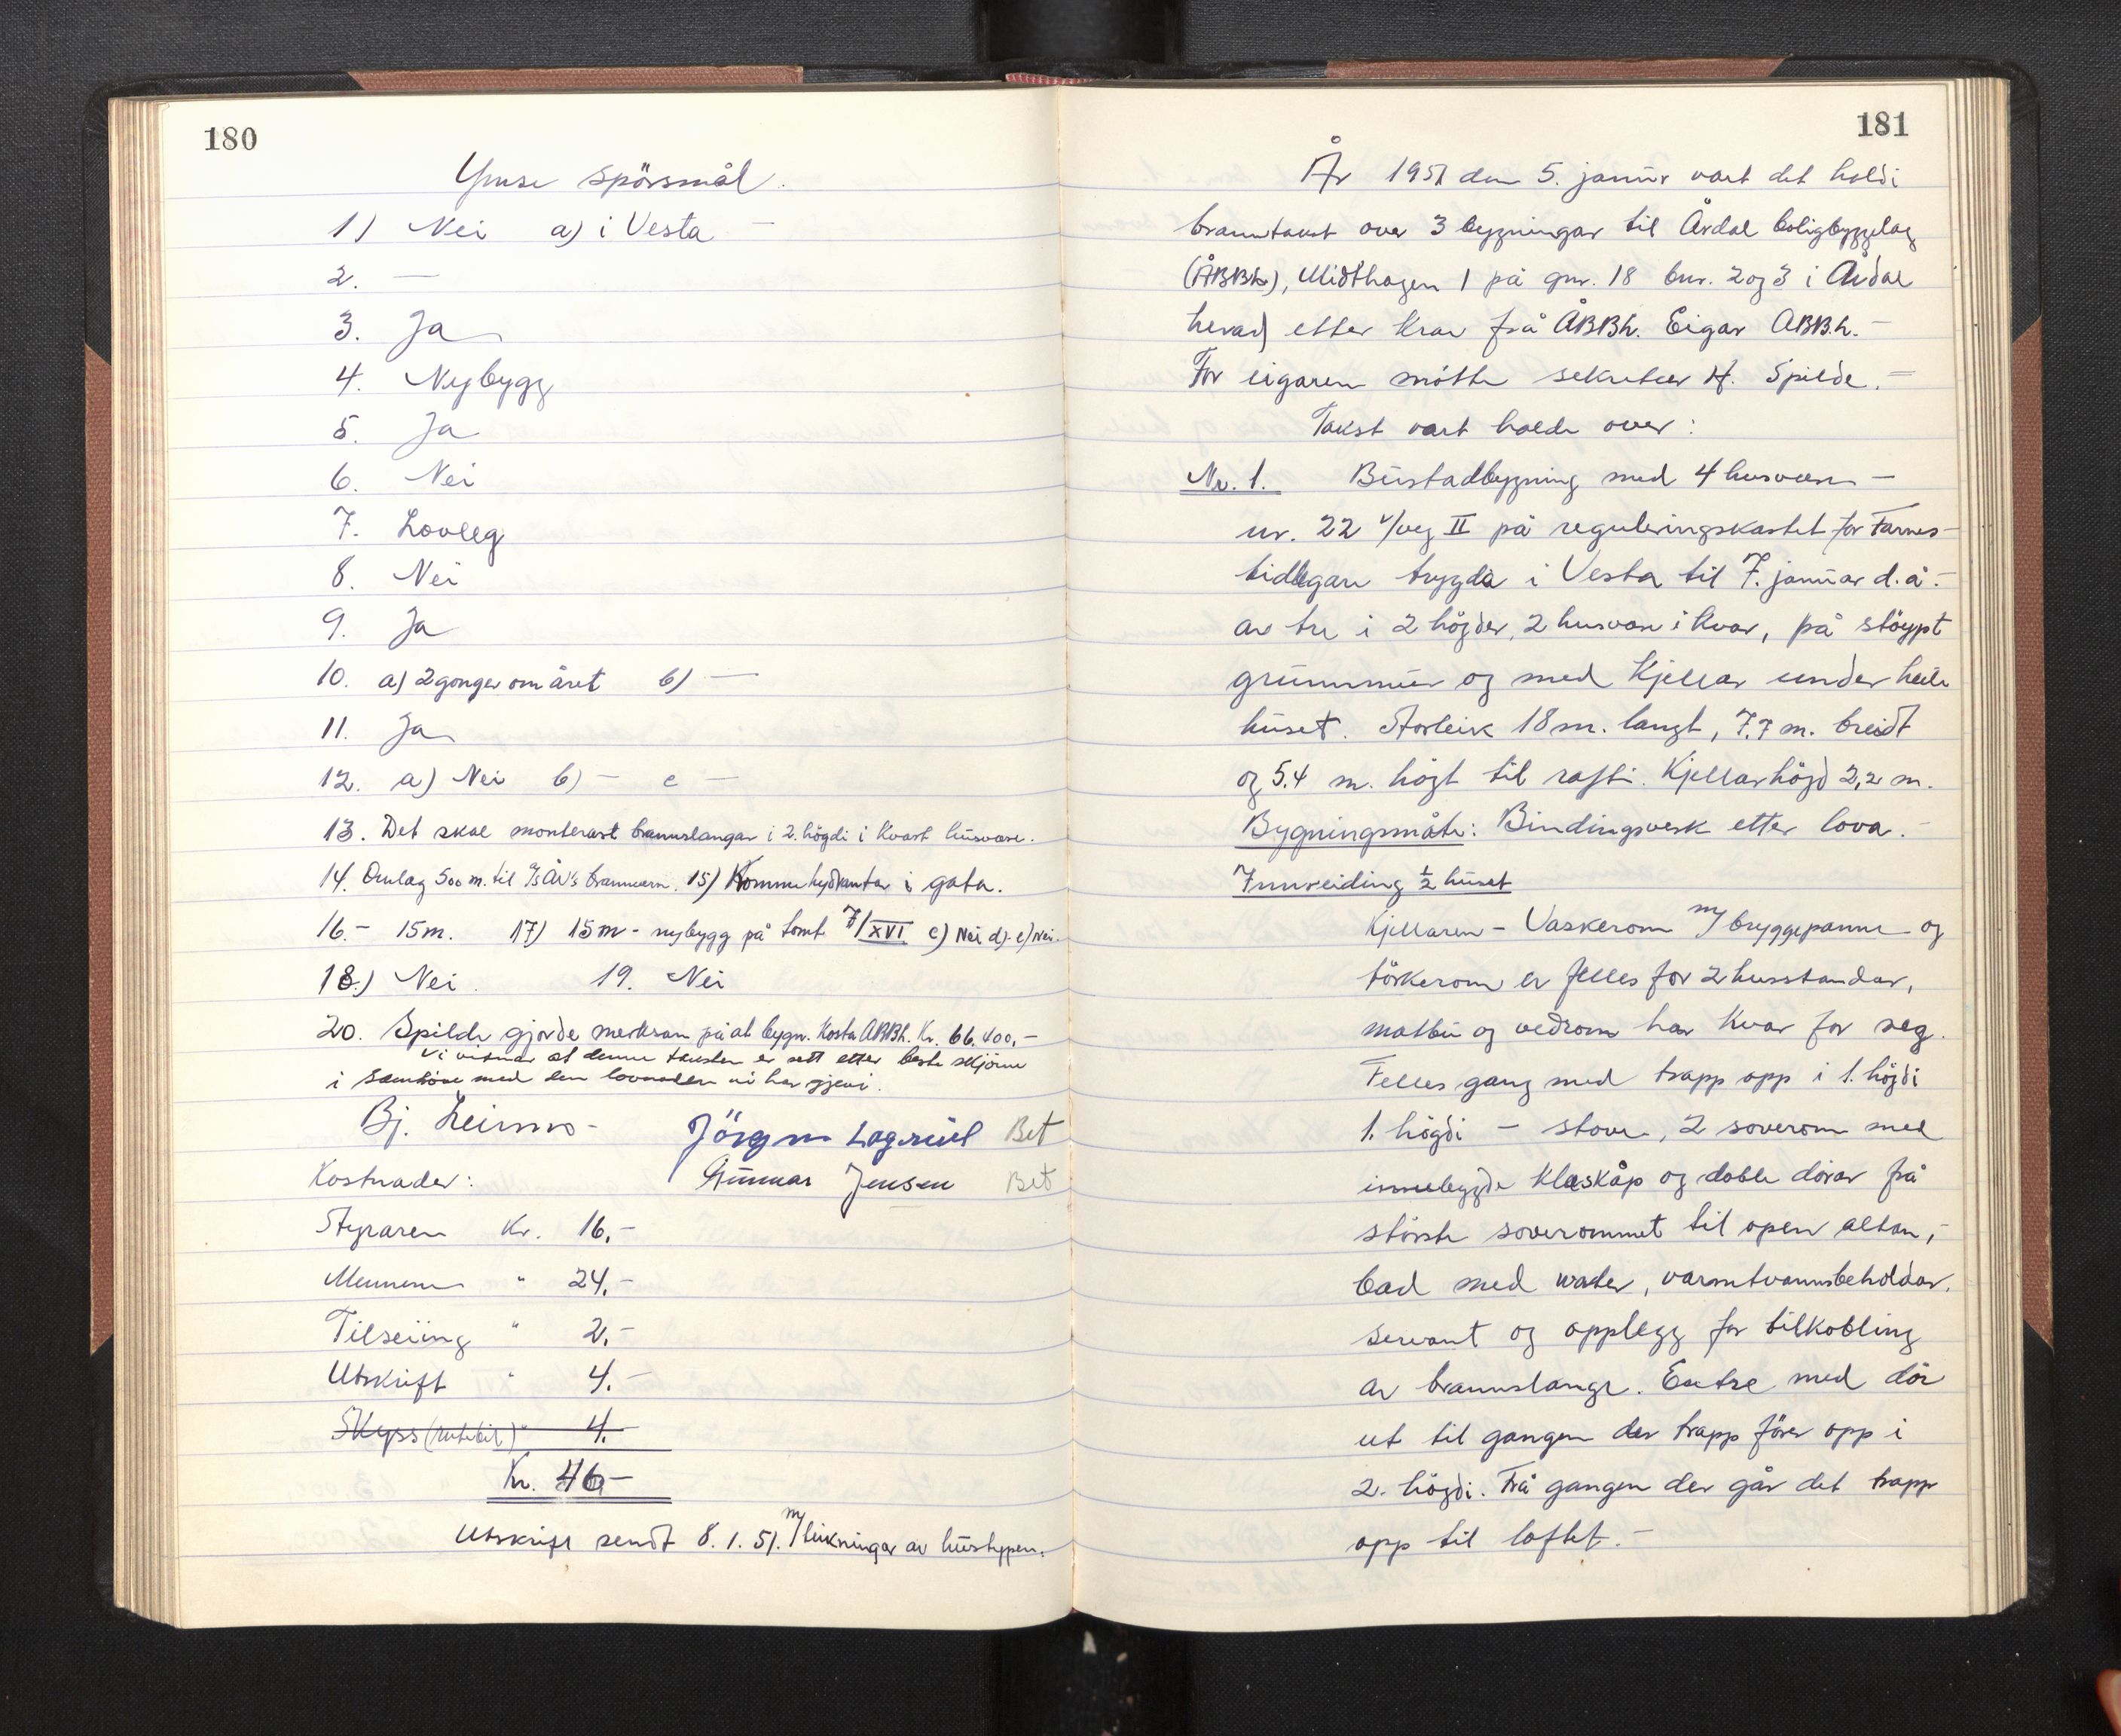 180
Ymse spörsmål.
1) Nei a) i Vesta —
2. —
3. Ja
4. Nybygg
5. Ja
6. Nei
7. Lovleg
8. Nei
9. Ja
10. a) 2 gonger om året b) —
11. Ja
12. a) Nei b) — c —
13. Det skal monterast brannslangar i 2. högdi i kvart husvære.
14. Omlag 500 m. til A/S ÅV's brannvern. 15) Komme hydrantar i gata.
16.- 15m. 17) 15m - nybygg på tomt 7/XVI c) Nei d)- e) Nei.
18.) Nei. 19. Nei
20. Spilde gjorde merksam på at bygn. kosta ÅBBL. Kr. 66.400,-
Vi vitnar at denne taksten er sett etter beste skjöne
i samhöve med den lovnaden vi har gjevi.
Bj. Leirmo- Jörgen Lægreid Bet
Kostnader: Gunnar Jensen Bet
Styraren Kr. 16,-
Mennene " 24,-
Tilseiing " 2,-
Utskrift " 4.-
Skyss (rutebil) " 4.-
Kr. 46-
Utskrift sendt 8.1.51. m/teikningar av hustypen.
181
År 1951 den 5. januar vart det haldi
branntakst over 3 bygningar til Årdal boligbyggelag
(ÅBBL), Midthagen 1 på gnr. 18 bnr. 2 og 3 i Årdal
herad etter krav frå ÅBBL. Eigar ÅBBL. -
For eigaren mötte sekretær H. Spilde. -
Takst vart halde over:
Nr. 1. Bustadbygning med 4 husvære —
nr. 22 v/veg II på reguleringskartet for Farnes -
tidlegare trygda i Vesta til 7. januar d.å. -
av tre i 2 högder, 2 husvære i kvar, på stöypt
grunnmur og med kjellar under heile
huset. Storleik 18 m. langt, 7.7 m. breidt
og 5.4 m. högt til raft. Kjellarhögd 2,2 m.
Bygningsmåte: Bindingsverk etter lova. -
Innreiding ½ huset
Kjellaren - Vaskerom m/ bryggepanne og
törkerom er felles for 2 husstandar,
matbu og vedrom har kvar for seg.
Felles gang med trapp opp i 1. högdi
1. högdi - stove, 2 soverom med
innebygde klæskåp og doble dörar frå
störste soverommet til open altan, -
bad med water, varmtvannsbeholdar,
servant og opplegg for tilkobling
av brannslange. Entre med dör
ut til gangen der trapp förer opp i
2. högdi. Frå gangen der går det trapp
opp til loftet. -